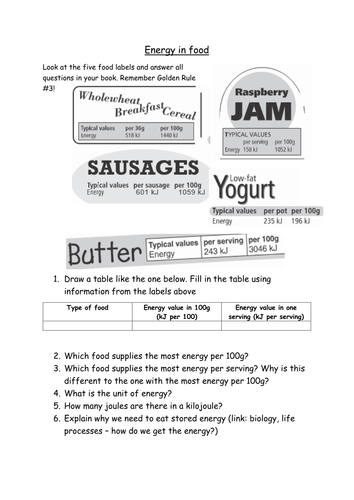 Energy in food
Look at the five food labels and answer all
questions in your book. Remember Golden Rule
#3!
Wholewheat
Breakfast Cereal
Typical values per 36g per 100g
Energy 518 kJ 1440 kJ
Raspberry
JAM
TYPICAL VALUES
per serving per 100g
Energy 158 kJ 1052 kJ
SAUSAGES
Typical values per sausage per 100g
Energy 601 kJ 1059 kJ
Low-fat
Yogurt
Typical values per pot per 100g
Energy 235 kJ 196 kJ
Butter
Typical values per serving per 100g
Energy 243 kJ 3046 kJ
1. Draw a table like the one below. Fill in the table using
information from the labels above
Type of food Energy value in 100g Energy value in one
(kJ per 100) serving (kJ per serving)
2. Which food supplies the most energy per 100g?
3. Which food supplies the most energy per serving? Why is this
different to the one with the most energy per 100g?
4. What is the unit of energy?
5. How many joules are there in a kilojoule?
6. Explain why we need to eat stored energy (link: biology, life
processes – how do we get the energy?)